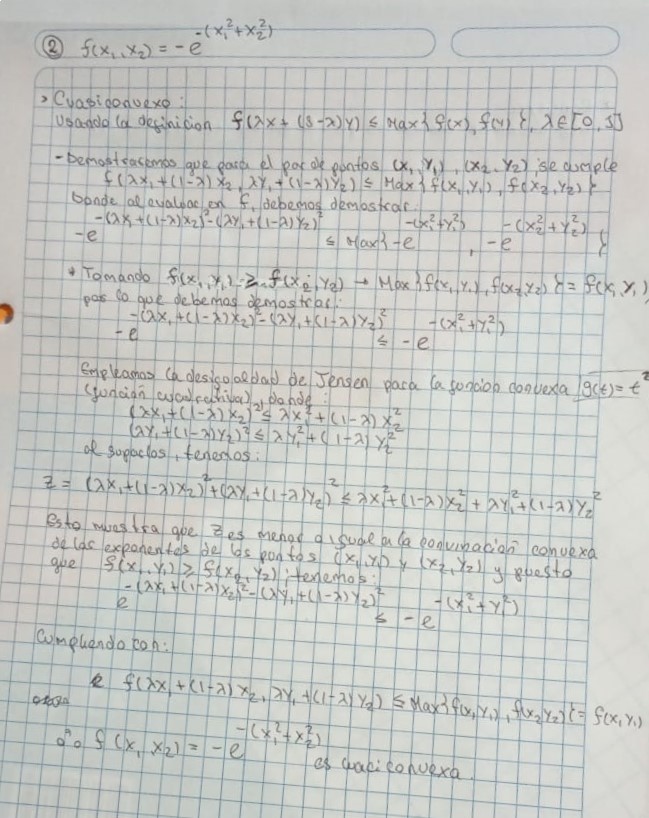 ② f(x₁,x₂) = -e^{-(x₁²+x₂²)}
> Cuasiconvexo:
Usando la definicion f(λx + (1-λ)y) ≤ Max{f(x), f(y)}, λ∈[0,1]
- Demostraremos que para el par de puntos (x₁,y₁), (x₂,y₂), se cumple
f(λx₁+(1-λ)x₂, λy₁+(1-λ)y₂) ≤ Max{f(x₁,y₁), f(x₂,y₂)}
Donde al evaluar en f, debemos demostrar:
-e^{-(λx₁+(1-λ)x₂)²-(λy₁+(1-λ)y₂)²} ≤ Max{-e^{-(x₁²+y₁²)}, -e^{-(x₂²+y₂²)}}
* Tomando f(x₁,y₁) ≥ f(x₂,y₂) → Max{f(x₁,y₁), f(x₂,y₂)} = f(x₁,y₁)
por lo que debemos demostrar:
-e^{-(λx₁+(1-λ)x₂)²-(λy₁+(1-λ)y₂)²} ≤ -e^{-(x₁²+y₁²)}
Empleamos la desigualdad de Jensen para la funcion convexa g(t)=t²
(función cuadrativa), donde:
(λx₁+(1-λ)x₂)² ≤ λx₁²+(1-λ)x₂²
(λy₁+(1-λ)y₂)² ≤ λy₁²+(1-λ)y₂²
al suparlos, tenemos:
z = (λx₁+(1-λ)x₂)²+(λy₁+(1-λ)y₂)² ≤ λx₁²+(1-λ)x₂² + λy₁²+(1-λ)y₂²
Esto muestra que z es menor o igual a la convinación convexa
de los exponentes de los puntos (x₁,y₁) y (x₂,y₂) y puesto
que f(x₁,y₁) ≥ f(x₂,y₂); tenemos:
e^{-(λx₁+(1-λ)x₂)²-(λy₁+(1-λ)y₂)²} ≤ -e^{-(x₁²+y₁²)}
Cumpliendo con:
f(λx₁+(1-λ)x₂, λy₁+(1-λ)y₂) ≤ Max{f(x₁,y₁), f(x₂,y₂)} = f(x₁,y₁)
∴ f(x₁,x₂) = -e^{-(x₁²+x₂²)}
es cuaciconvexa.